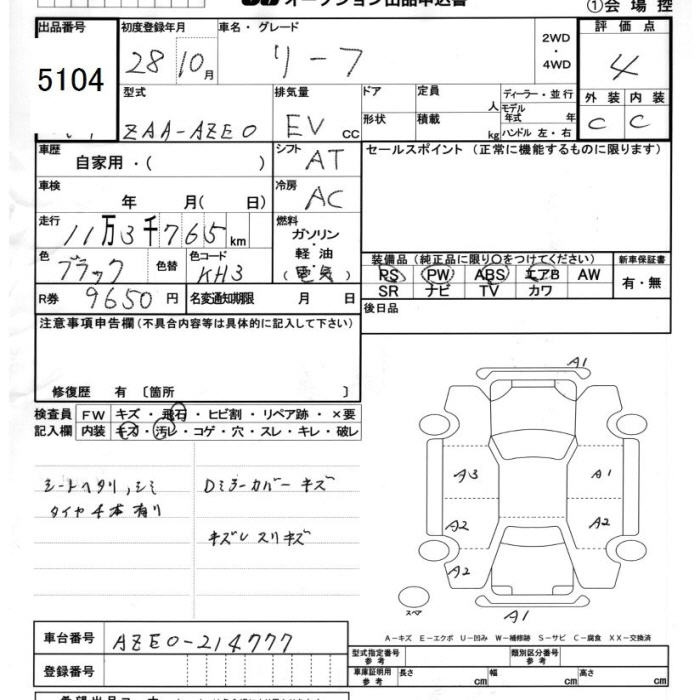 オークション出品申込書
①会場控
出品番号 初度登録年月 車名・グレード 評価点
5104 28 10月 リーフ 2WD・4WD 4
型式 排気量 ドア 定員 人 ディーラー・並行 外装 内装
ZAA-AZE0 EV cc 形状 積載 kg モデル年式 年 ハンドル 左・右 C C
車歴 自家用・( ) シフト AT セールスポイント (正常に機能するものに限ります)
車検 年 月(日) 冷房 AC
走行 11万3千765km 燃料 ガソリン・軽油・(電気)
色 ブラック 色替 色コード KH3
装備品(純正品に限り○をつけてください) 新車保証書
PS PW ABS エアB AW 有・無
SR ナビ TV カワ
R券 9650円 名変通知期限 月 日
後日品
注意事項申告欄(不具合内容等は具体的に記入して下さい)
修復歴 有 〔箇所 〕
検査員 FW キズ・飛石・ヒビ割・リペア跡・×要
記入欄 内装 キズ・汚レ・コゲ・穴・スレ・キレ・破レ
シートヘタリ,シミ Dミラーカバー キズ
タイヤ4本有り
キズUスリキズ
A1
A3 A1
A2 A2
A2
スペア A1
A-キズ E-エクボ U-凹み W-補修跡 S-サビ C-腐食 XX-交換済
車台番号 AZE0-214777
登録番号
型式指定番号 参考 類別区分番号 参考
車庫証明用 参考 長さ cm 幅 cm 高さ cm